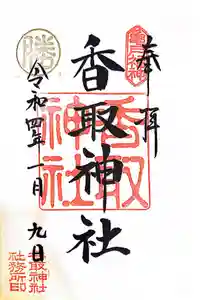 奉拝
香取神社
令和四年一月九日
勝
香取
神社
香取神社
社務所印